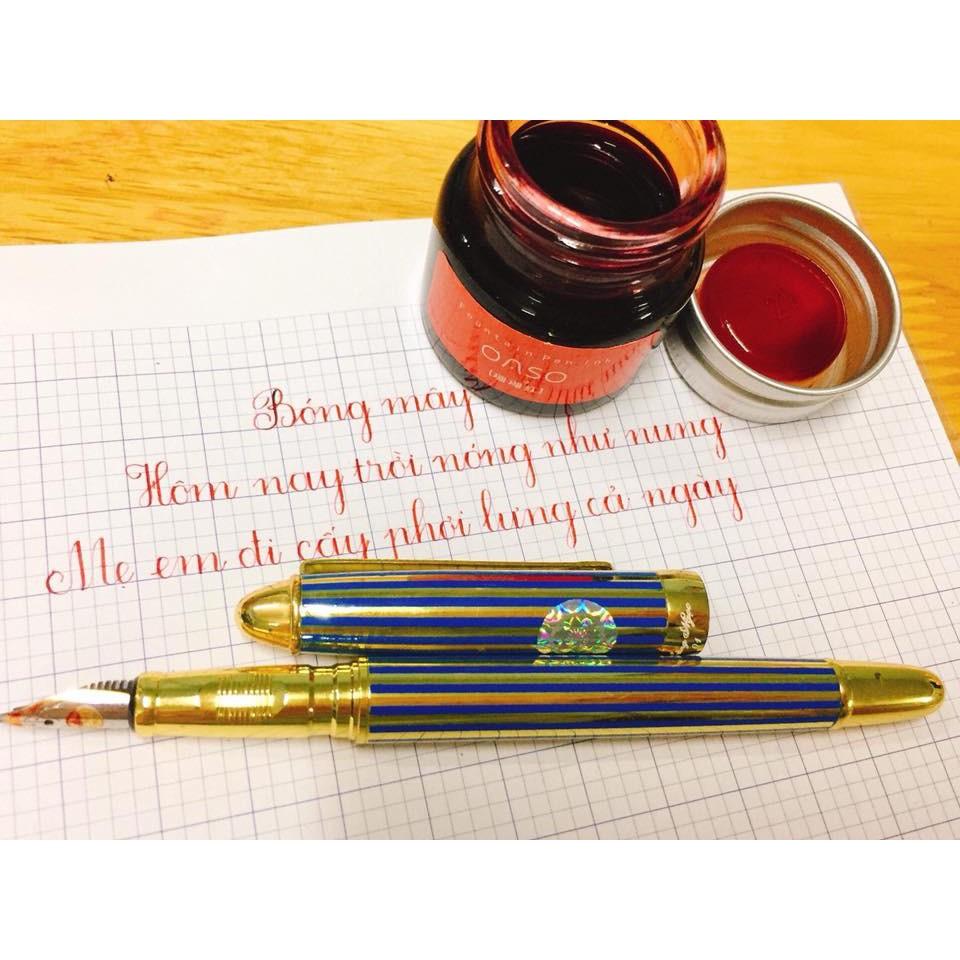 Fountain pen ink
ONSO
Bóng mây
Hôm nay trời nóng như nung
Mẹ em đi cấy phơi lưng cả ngày